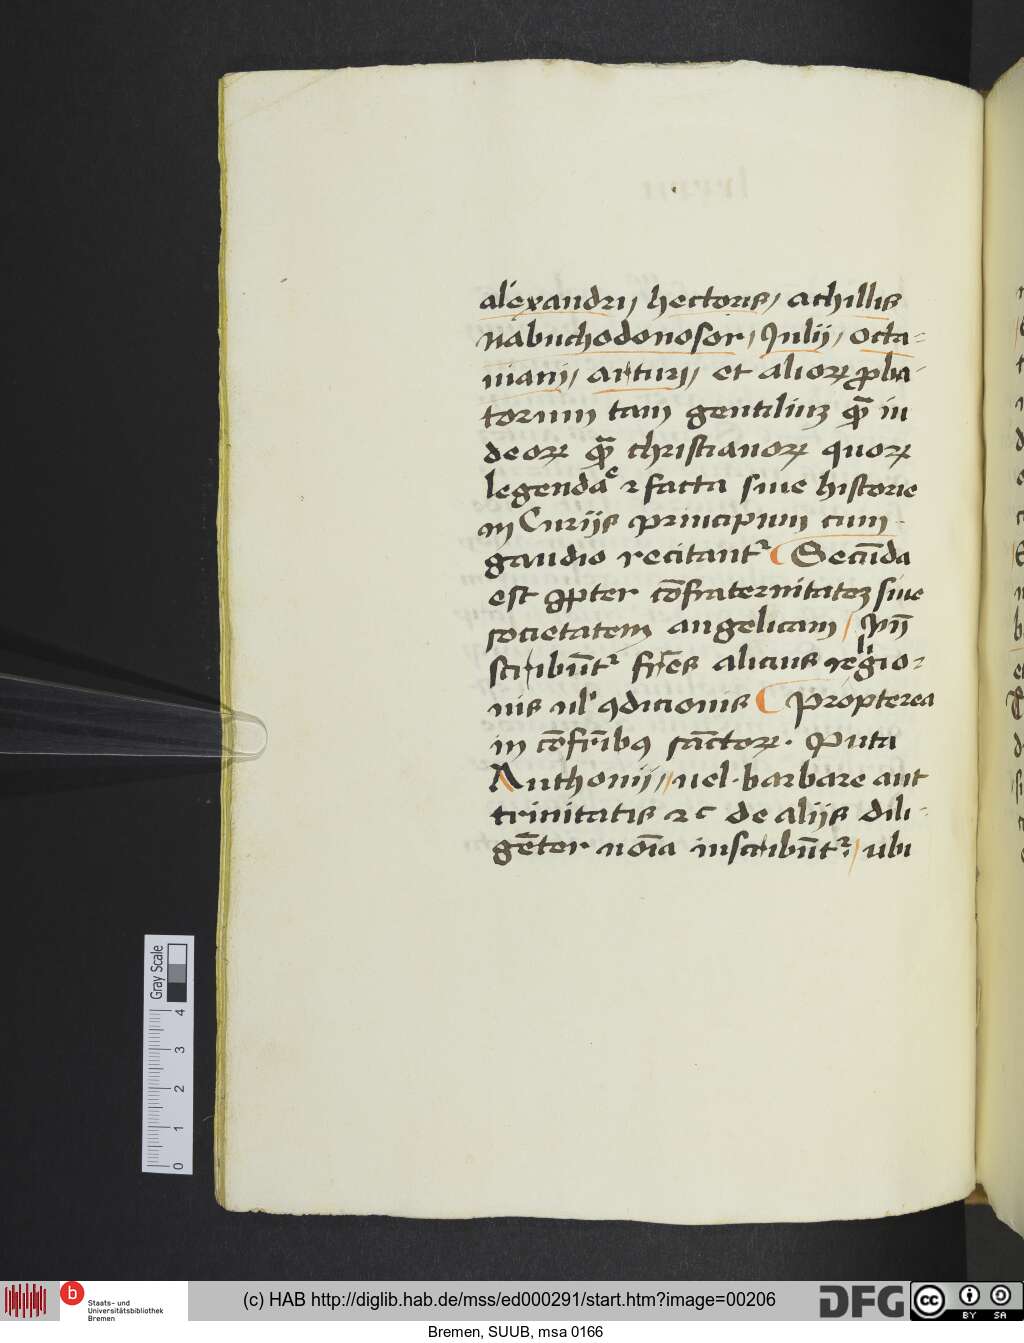 alexandri, hectoris, achillis
Nabuchodonosor, Julij, octa-
uiani, arturi, et alioꝝ ꝓba-
torum tam gentiliuꝫ qᷓ̄ iu
deoꝝ qᷓ̄ christianoꝝ quoꝝ
legenda ⁊ facta siue historie
in Curijs principum cum
gaudio recitantr Secūda
est ꝓpter cōfraternitateꝫ siue
societatem angelicam
scribūtr fr̄es alicuius
nis ul' ꝯdicionis Propterea
in cōfr̄ibꝰ sāctoꝝ. Puta
Anthonij, uel barbare aut
trinitatis ⁊c de alijs dili-
gēter noīa inscribūtr, ubi
Gray Scale
0 1 2 3 4
b
Staats- und
Universitätsbibliothek
Bremen
(c) HAB http://diglib.hab.de/mss/ed000291/start.htm?image=00206
DFG
cc BY SA
Bremen, SUUB, msa 0166